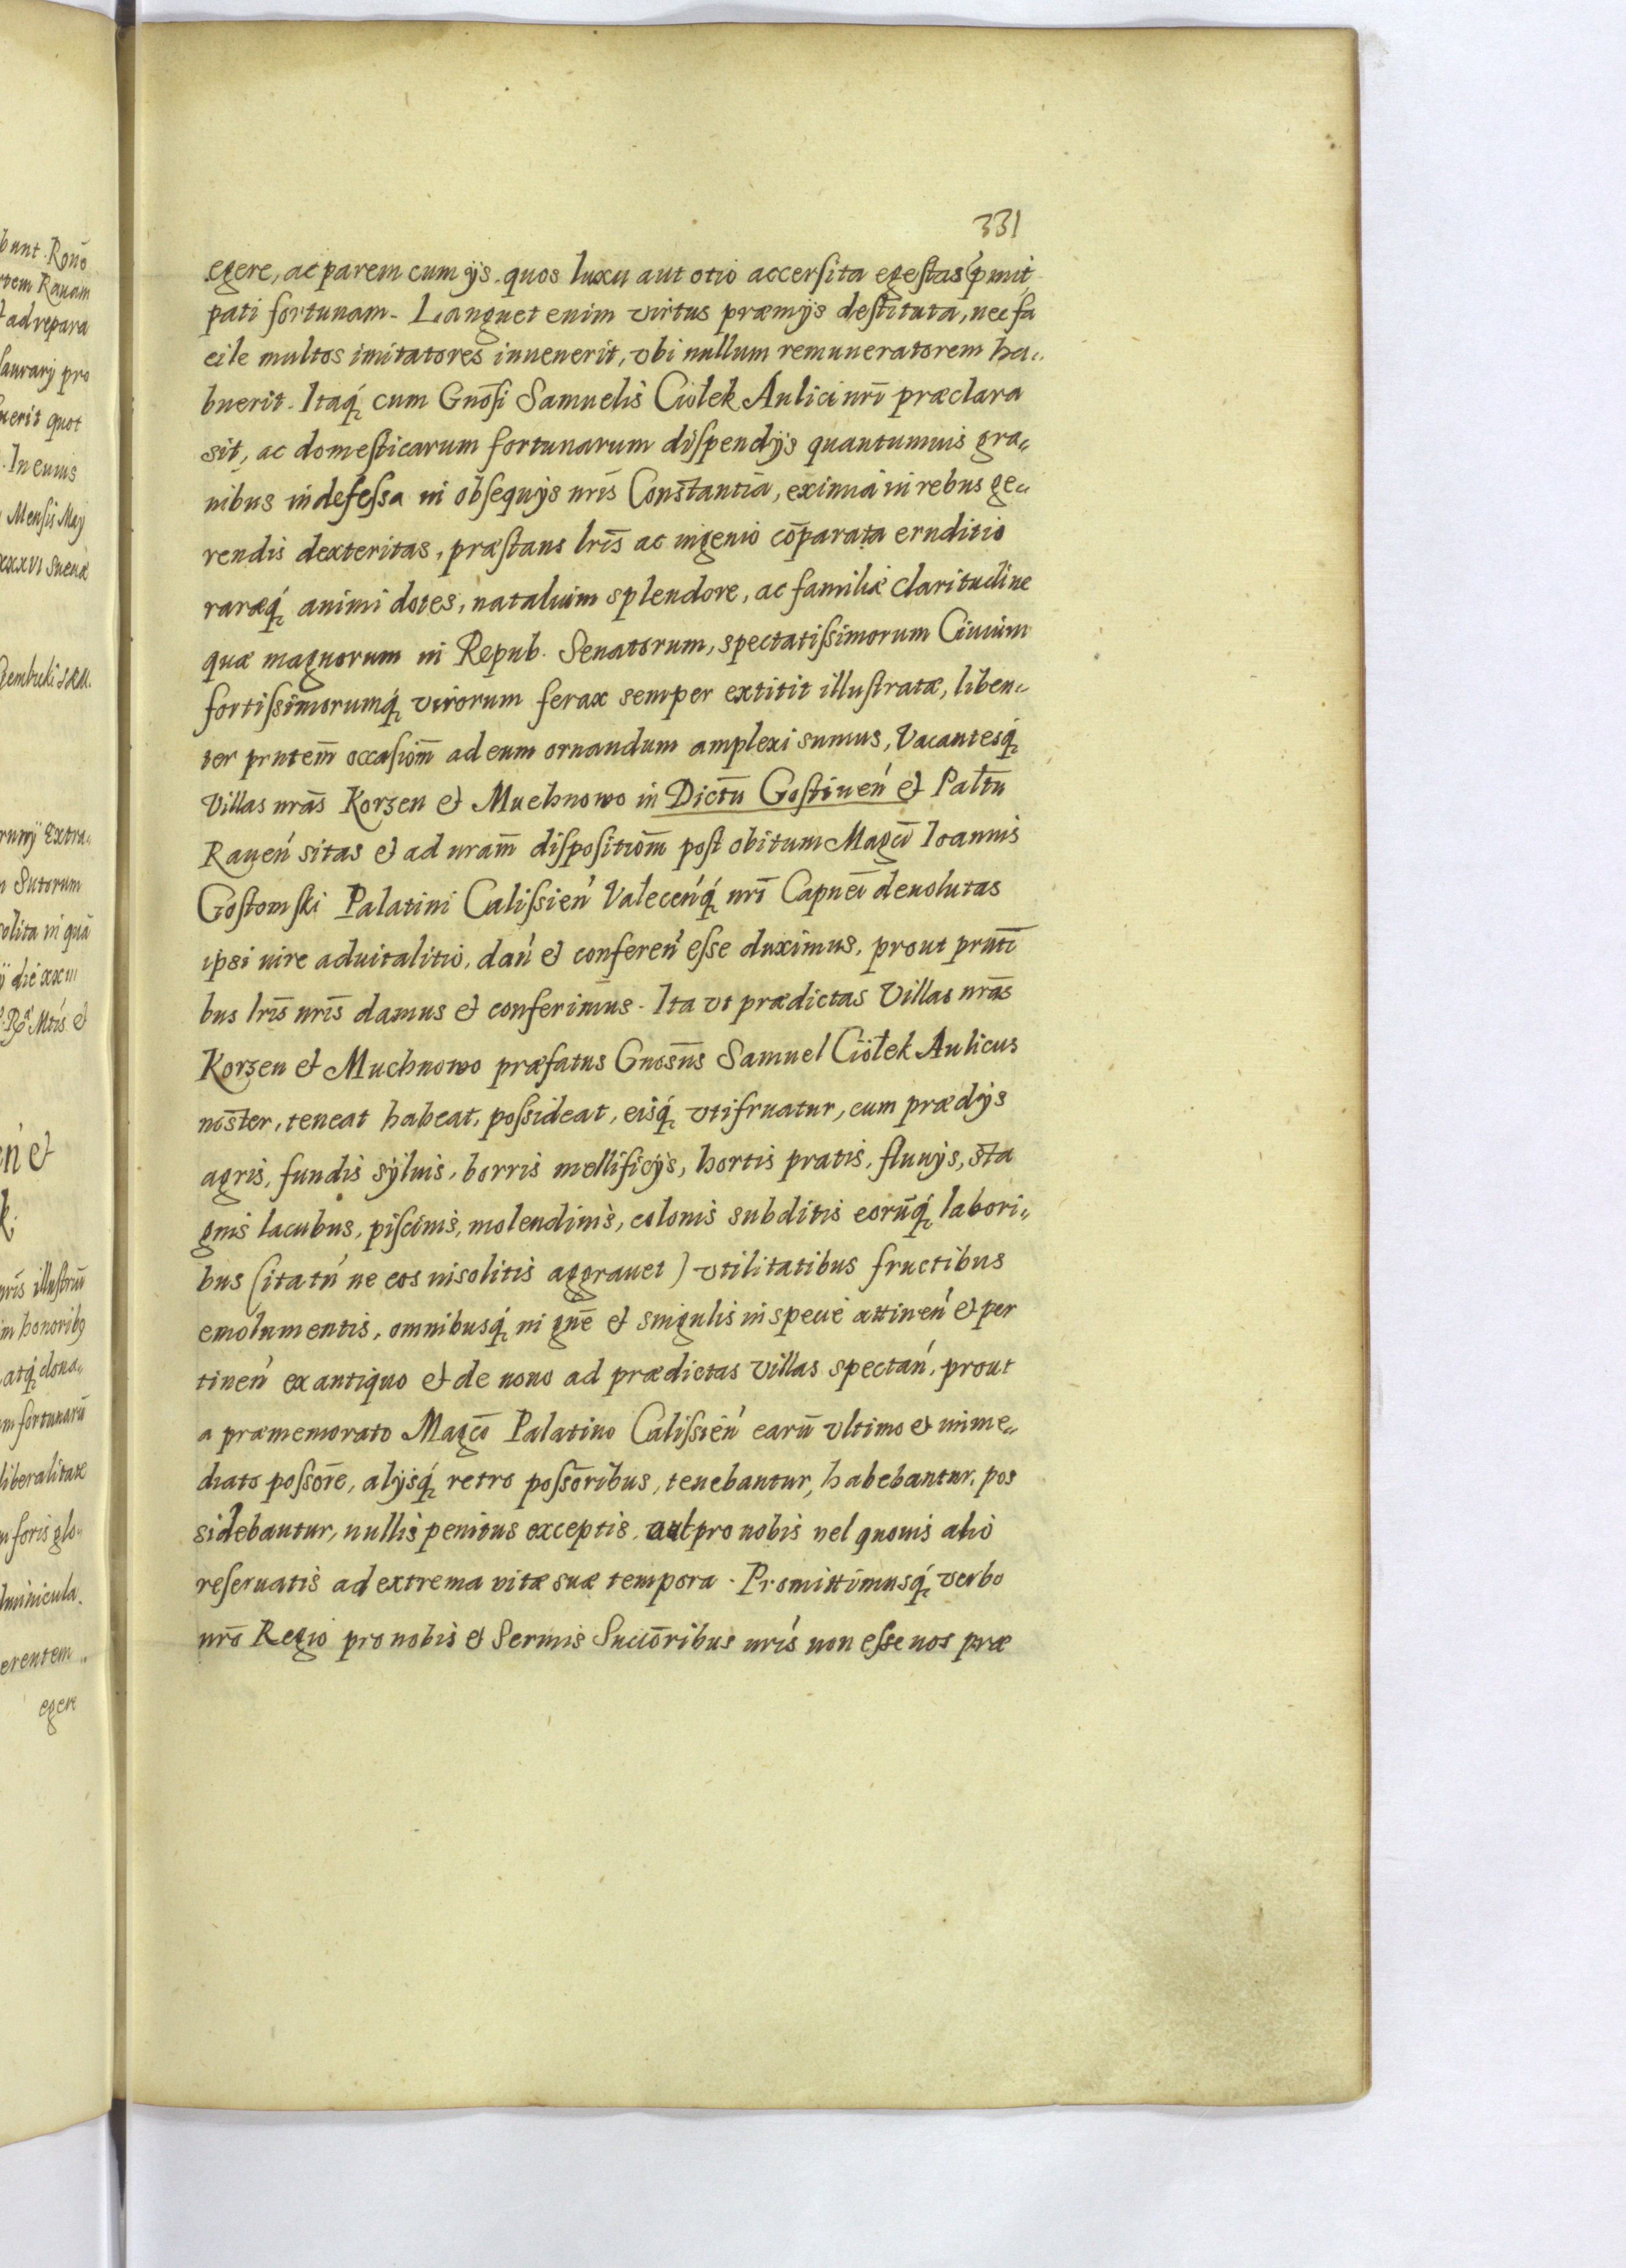 331
egere, ac parem cum ijs, quos luxu aut otio accersita egestas p̱mit,
pati fortunam. Languet enim virtus præmijs destituta, nec fa
cile multos imitatores inuenerit, vbi nullum remuneratorem ha„
buerit. Itaq́ cum Gnōsi Samuelis Ciołek Aulici nrī præclara
sit, ac domesticarum fortunarum dispendijs quantumuis gra„
uibus indefessa in obsequijs nrīs Constantia, eximia in rebus ge„
rendis dexteritas, præstans lrīs ac ingenio cōparata eruditio
raræq́ animi dotes, natalium splendore, ac familiæ claritudine
quæ magnorum in Repub. Senatorum, spectatissimorum Ciuium
fortissimorumq́ virorum ferax semper extitit illustratæ, liben„
ter prntem̄ occasiom̄ ad eum ornandum amplexi sumus, Vacantesq́
Villas nrās Korzen et Muchnowo in Dictū Gostinen̄ et Palt̄n
Rauen̄ sitas et ad nram̄ dispositiom̄ post obitum Magci Ioannis
Gostomski Palatini Calissien̄ Valecen̄q́ nrī Capnei deuolutas
ipsi iure aduitalitio, dan̄ et conferen̄ esse duximus, prout prnti
bus lrīs nrīs damus et conferimus. Ita vt prædictas Villas nrās
Korzen et Muchnowo præfatus Gnosus Samuel Ciołek Aulicus
noster, teneat habeat, possideat, eisq́ vtifruatur, cum prædijs
agris, fundis syluis, borris mellificijs, hortis pratis, fluuijs, sta
gnis lacubus, piscinis, molendinis, colonis subditis eorūq́ labori„
bus (ita tn̄ ne eos insolitis aggrauet) vtilitatibus fructibus
emolumentis, omnibusq́ in gn̄e et singulis in specie attinen̄ et per
tinen̄ ex antiquo et de nouo ad prædictas villas spectan̄, prout
a præmemorato Magco Palatino Calissien̄ earū vltimo et imme„
diato possōre, alijsq́ retro possōribus, tenebantur, habebantur, pos
sidebantur, nullis penitus exceptis, aut pro nobis vel quouis alio
reseruatis ad extrema vitæ suæ tempora. Promittimusq́ verbo
nrō Regio pro nobis et Sermis Succōribus nrīs non esse nos præ
bunt. Ronō
rtem Rauam
ad repara
uerit quot
Mensis Maij
olita in quā
en̄ et
nrīs illustriū
in honoribꝯ
atq́ dona„
m fortunarū
liberalitate
foris glo„
egere